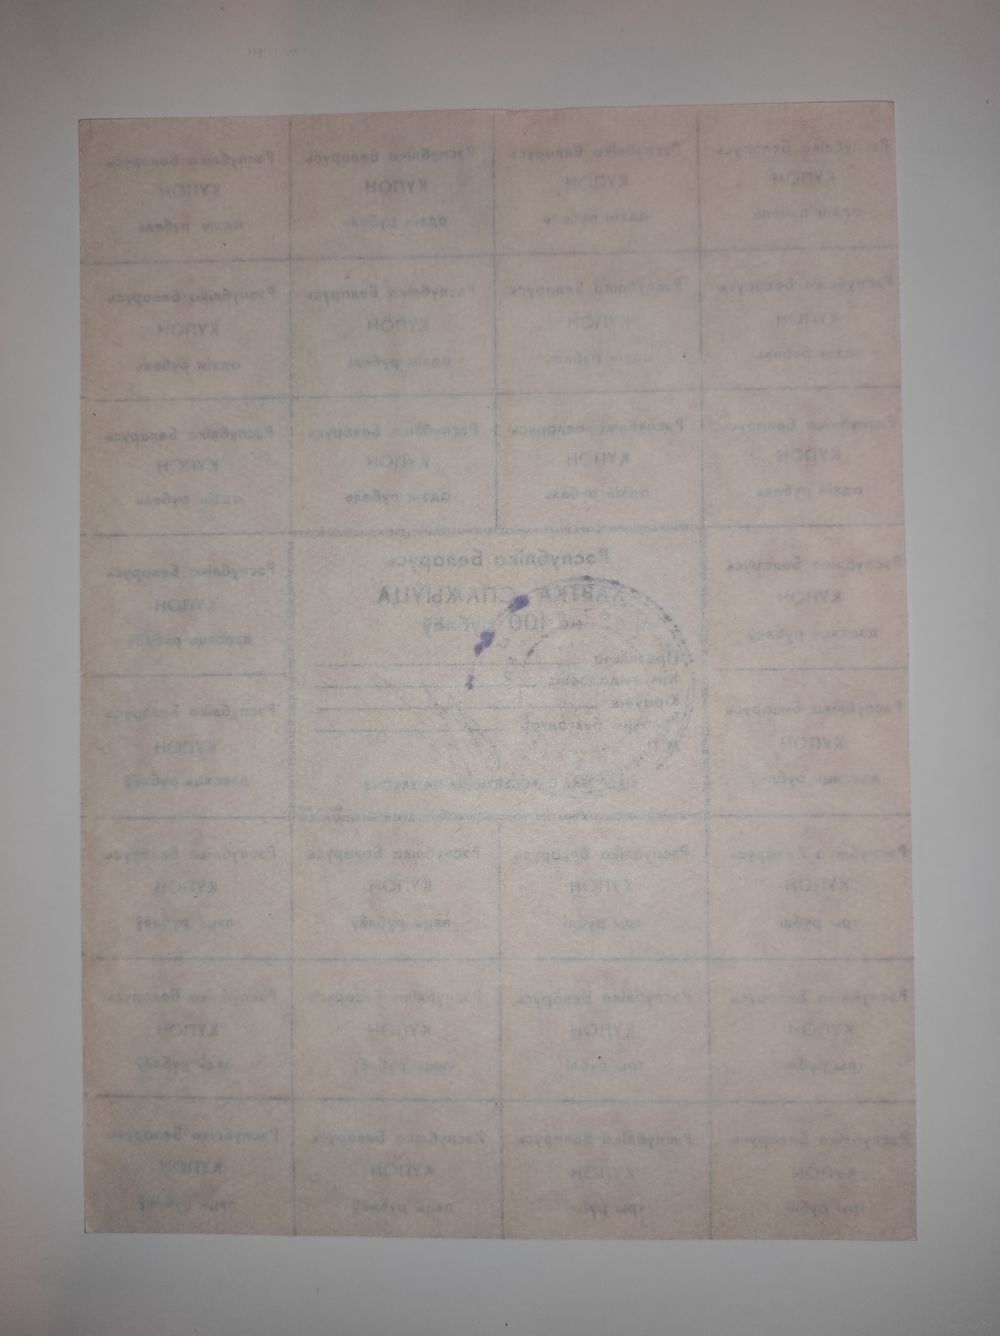 Рэспубліка Беларусь
КУПОН
адзін рубель
Рэспубліка Беларусь
КУПОН
адзін рубель
Рэспубліка Беларусь
КУПОН
адзін рубель
Рэспубліка Беларусь
КУПОН
адзін рубель
Рэспубліка Беларусь
КУПОН
адзін рубель
Рэспубліка Беларусь
КУПОН
адзін рубель
Рэспубліка Беларусь
КУПОН
адзін рубель
Рэспубліка Беларусь
КУПОН
адзін рубель
Рэспубліка Беларусь
КУПОН
адзін рубель
Рэспубліка Беларусь
КУПОН
адзін рубель
Рэспубліка Беларусь
КУПОН
адзін рубель
Рэспубліка Беларусь
КУПОН
адзін рубель
Рэспубліка Беларусь
КУПОН
дзесяць рублёў
Рэспубліка Беларусь
КУПОН
дзесяць рублёў
Рэспубліка Беларусь
КАРТКА СПАЖЫЎЦА
на 100 рублёў
Прозвішча
Кім выдадзена
Кіраўнік
Галоўны бухгалтар
М. П.
Рэспубліка Беларусь
КУПОН
дзесяць рублёў
Рэспубліка Беларусь
КУПОН
дзесяць рублёў
Рэспубліка Беларусь
КУПОН
пяць рублёў
Рэспубліка Беларусь
КУПОН
пяць рублёў
Рэспубліка Беларусь
КУПОН
тры рублі
Рэспубліка Беларусь
КУПОН
тры рублі
Рэспубліка Беларусь
КУПОН
пяць рублёў
Рэспубліка Беларусь
КУПОН
пяць рублёў
Рэспубліка Беларусь
КУПОН
тры рублі
Рэспубліка Беларусь
КУПОН
тры рублі
Рэспубліка Беларусь
КУПОН
пяць рублёў
Рэспубліка Беларусь
КУПОН
пяць рублёў
Рэспубліка Беларусь
КУПОН
тры рублі
Рэспубліка Беларусь
КУПОН
тры рублі